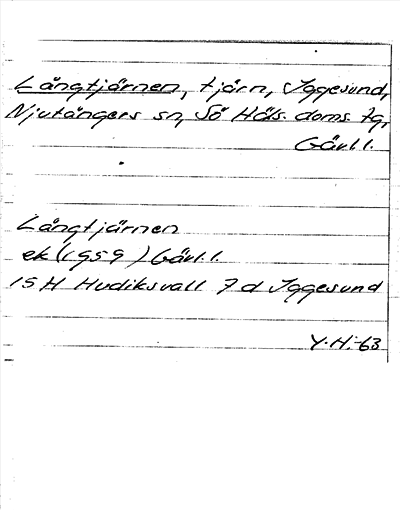 Långtjärnen, tjärn, Iggesund,
Njutångers sn, Sö Häls. doms. tg,
Gävl.l.
Långtjärnen
ek (1959) Gävl.l.
15 H Hudiksvall 7 d Iggesund
Y.H.-63